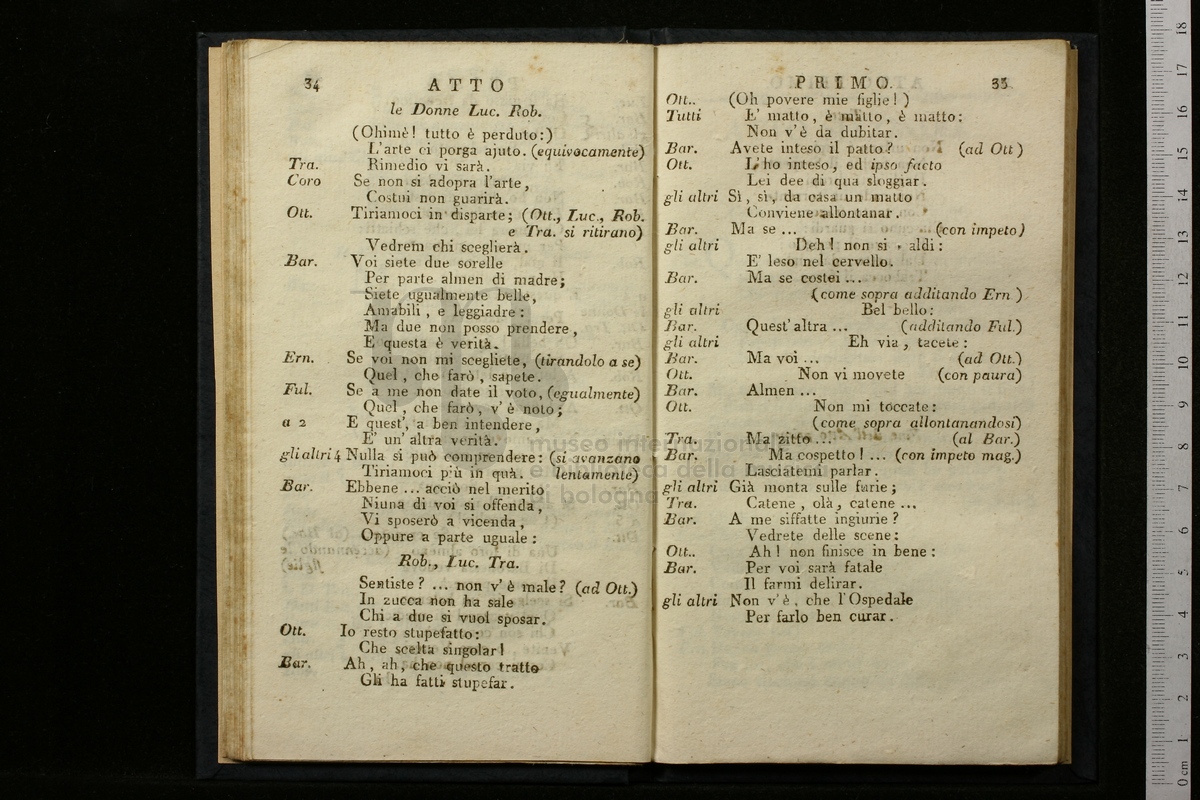 34 ATTO
le Donne Luc. Rob.
(Ohimè! tutto è perduto:)
L'arte ci porga ajuto. (equivocamente)
Tra. Rimedio vi sarà.
Coro Se non si adopra l'arte,
Costui non guarirà.
Ott. Tiriamoci in disparte; (Ott., Luc., Rob.
e Tra. si ritirano)
Vedrem chi sceglierà.
Bar. Voi siete due sorelle
Per parte almen di madre;
Siete ugualmente belle,
Amabili, e leggiadre:
Ma due non posso prendere,
E questa è verità.
Ern. Se voi non mi scegliete, (tirandolo a se)
Quel, che farò, sapete.
Ful. Se a me non date il voto, (egualmente)
Quel, che farò, v'è noto;
a 2 E quest', a ben intendere,
E' un' altra verità.
gli altri 4 Nulla si può comprendere: (si avanzano
Tiriamoci più in quà. lentamente)
Bar. Ebbene ... acciò nel merito
Niuna di voi si offenda,
Vi sposerò a vicenda,
Oppure a parte uguale:
Rob., Luc. Tra.
Sentiste? ... non v'è male? (ad Ott.)
In zucca non ha sale
Chi a due si vuol sposar.
Ott. Io resto stupefatto:
Che scelta singolar!
Bar. Ah, ah, che questo tratto
Gli ha fatti stupefar.
PRIMO. 35
Ott.. (Oh povere mie figlie!)
Tutti E' matto, è matto, è matto:
Non v'è da dubitar.
Bar. Avete inteso il patto? (ad Ott)
Ott. L'ho inteso, ed ipso facto
Lei dee di qua sloggiar.
gli altri Sì, sì, da casa un matto
Conviene allontanar.
Bar. Ma se ... (con impeto)
gli altri Deh! non si aldi:
E' leso nel cervello.
Bar. Ma se costei ...
(come sopra additando Ern)
gli altri Bel bello:
Bar. Quest'altra ... (additando Ful.)
gli altri Eh via, tacete:
Bar. Ma voi ... (ad Ott.)
Ott. Non vi movete (con paura)
Bar. Almen ...
Ott. Non mi toccate:
(come sopra allontanandosi)
Tra. Ma zitto ... (al Bar.)
Bar. Ma cospetto! ... (con impeto mag.)
Lasciatemi parlar.
gli altri Già monta sulle furie;
Tra. Catene, olà, catene ...
Bar. A me siffatte ingiurie?
Vedrete delle scene:
Ott.. Ah! non finisce in bene:
Bar. Per voi sarà fatale
Il farmi delirar.
gli altri Non v'è, che l'Ospedale
Per farlo ben curar.
museo internazionale
e biblioteca della
di bologna
0 cm 1 2 3 4 5 6 7 8 9 10 11 12 13 14 15 16 17 18